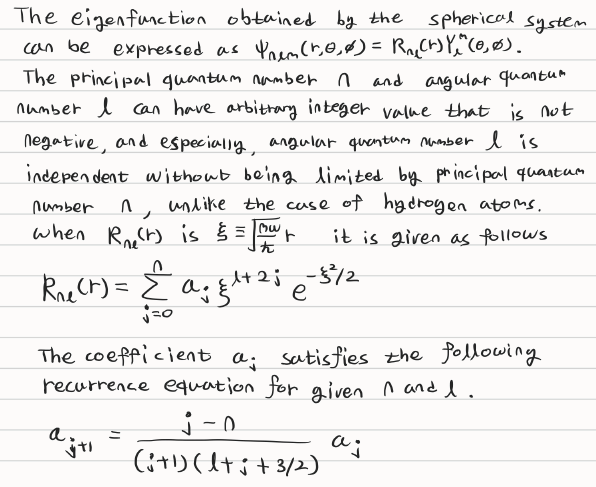 The eigenfunction obtained by the spherical system
can be expressed as Ψnlm(r,θ,ø) = Rnl(r)Yₗᵐ(θ,ø).
The principal quantum number n and angular quantum
number l can have arbitrary integer value that is not
negative, and especially, angular quantum number l is
independent without being limited by principal quantum
number n, unlike the case of hydrogen atoms.
when Rnl(r) is ξ ≡ √(mω/ħ) r it is given as follows
Rnl(r) = Σ_{j=0}^{n} a_j ξ^{l+2j} e^{-ξ²/2}
The coefficient a_j satisfies the following
recurrence equation for given n and l.
a_{j+1} = (j-n)/((j+1)(l+j+3/2)) a_j